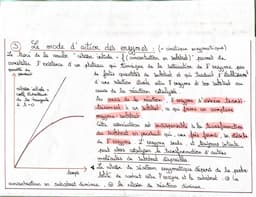 ③ Le mode d'action des enzymes : (= cinétique enzymatique)
Le tracé de la courbe "vitesse initiale = f (concentration en substrat)" permet de
constater l'existence d'un plateau qui témoigne de la saturation de l'enzyme par
quantité de
produit
de fortes quantités de substrat et qui traduit l'établissement
d'une relation étroite entre l'enzyme et son substrat au
cours de la réaction catalysée.
vitesse initiale =
coef directeur
de la tangente
à t = 0
Au cours de la réaction l'enzyme s'associe
à un substrat, ce qui forme un complexe
enzyme-substrat.
Cette association est indispensable à la transformation
du substrat en produit qui, une fois formé, se détache
de l'enzyme. L'enzyme seule, et toujours intacte,
peut alors catalyser la transformation d'autres
molécules de substrat disponibles.
temps
La vitesse de réaction enzymatique dépend de la probabilité
de contact entre l'enzyme et le substrat : la
concentration en substrat diminue, la vitesse de réaction diminue.